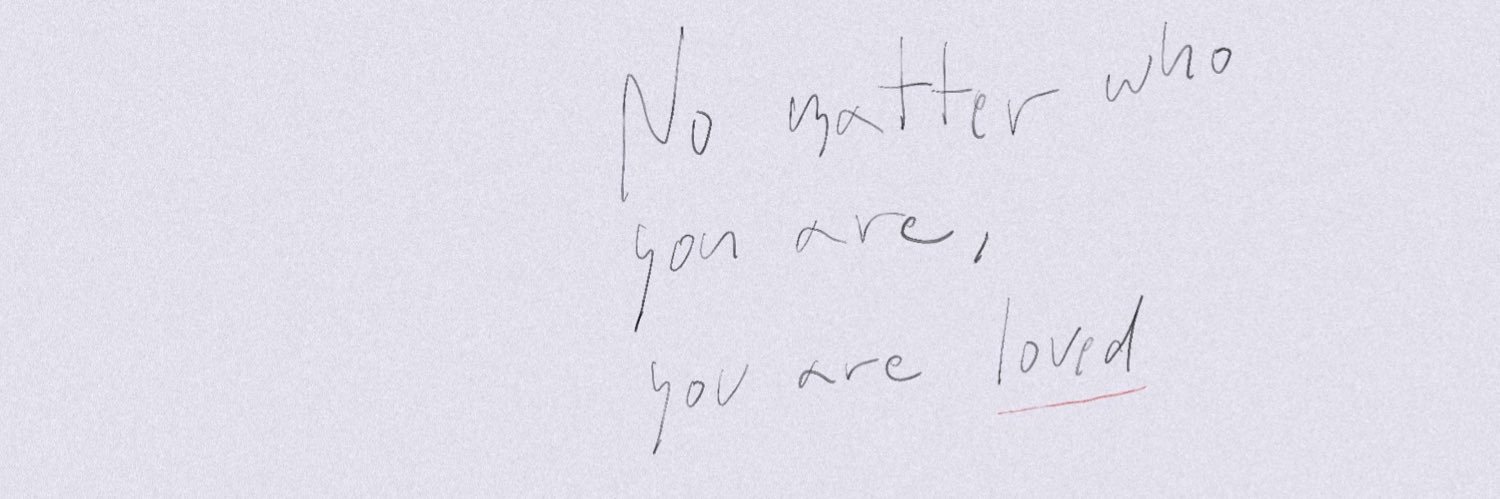 No matter who
you are,
you are loved